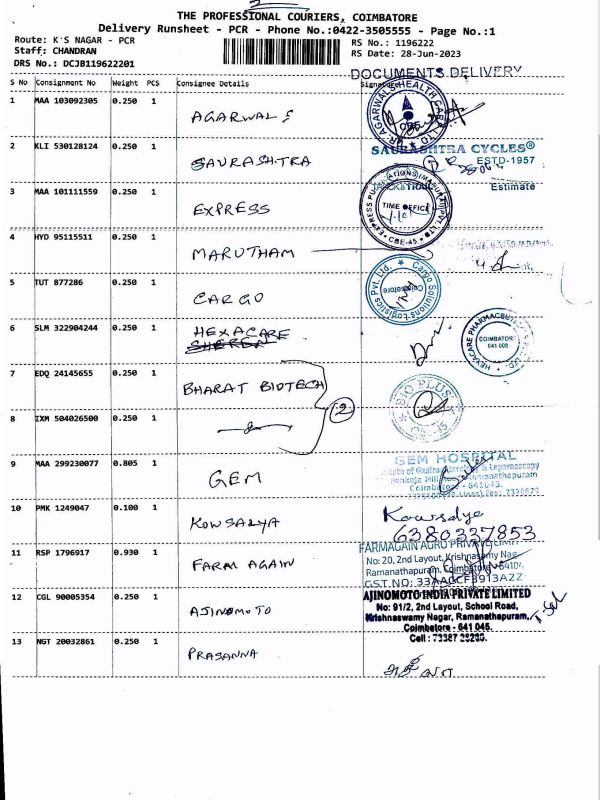 THE PROFESSIONAL COURIERS, COIMBATORE
Delivery Runsheet - PCR - Phone No.:0422-3505555 - Page No.:1
Route: K'S NAGAR - PCR
Staff: CHANDRAN
DRS No.: DCJB119622201
RS No.: 1196222
RS Date: 28-Jun-2023
DOCUMENTS DELIVERY
S No Consignment No Weight PCS Consignee Details Signature
1 MAA 103092305 0.250 1 AGARWAL'S
DR. AGARWAL'S HEALTH CARE LTD. CBE
2 KLI 530128124 0.250 1 SAURASHTRA
SAURASHTRA CYCLES®
ESTD-1957
3 MAA 101111559 0.250 1 EXPRESS
EXPRESS PUBLICATIONS (MADURAI) PVT. LTD.
TIME OFFICE
CBE-45.
Estimate
4 HYD 95115511 0.250 1 MARUTHAM
5 TUT 877286 0.250 1 CARGO
Cargo Solutions Logistics Pvt. Ltd.
Coimbatore
6 SLM 322904244 0.250 1 HEXACARE
HEXACARE PHARMACEUTICALS PVT. LTD.
COIMBATORE
641 009
7 EDQ 24145655 0.250 1 BHARAT BIOTECH
2
8 IXM 504026500 0.250 1
BIO PLUS
CBE-45
9 MAA 299230077 0.805 1 GEM
GEM HOSPITAL
Institute of Gastroenterology & Laparoscopy
Pankaja Mill Road, Ramanathapuram
Coimbatore - 641045.
10 PMK 1249047 0.100 1 KOWSALYA
Kowsalya
6380337853
11 RSP 1796917 0.930 1 FARM AGAIN
FARMAGAIN AGRO PRIVATE LIMITED
No: 20, 2nd Layout, Krishnasamy Nagar
Ramanathapuram, Coimbatore - 641045
12 CGL 90005354 0.250 1 AJINOMOTO
AJINOMOTO INDIA PRIVATE LIMITED
No: 91/2, 2nd Layout, School Road,
Krishnaswamy Nagar, Ramanathapuram,
Coimbatore - 641 045.
13 NGT 20032861 0.250 1 PRASANNA